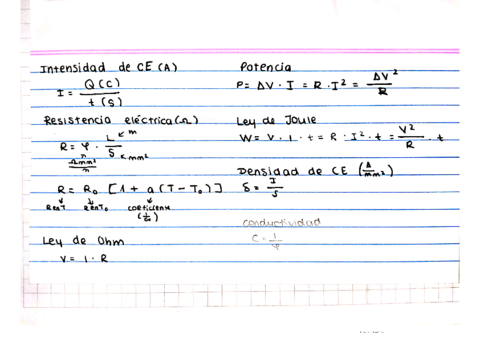 Intensidad de CE (A)
I = Q (C) / t (s)
Resistencia eléctrica (Ω)
R = φ · L / S
m
mm²
Ωmm² / m
R = R₀ [1 + a (T - T₀)]
R en T R en T₀ coeficiente
Ley de Ohm
V = I · R
Potencia
P = ΔV · I = R · I² = ΔV² / R
Ley de Joule
W = V · I · t = R · I² · t = V² / R · t
Densidad de CE (A / mm²)
δ = I / S
conductividad
C = 1 / φ